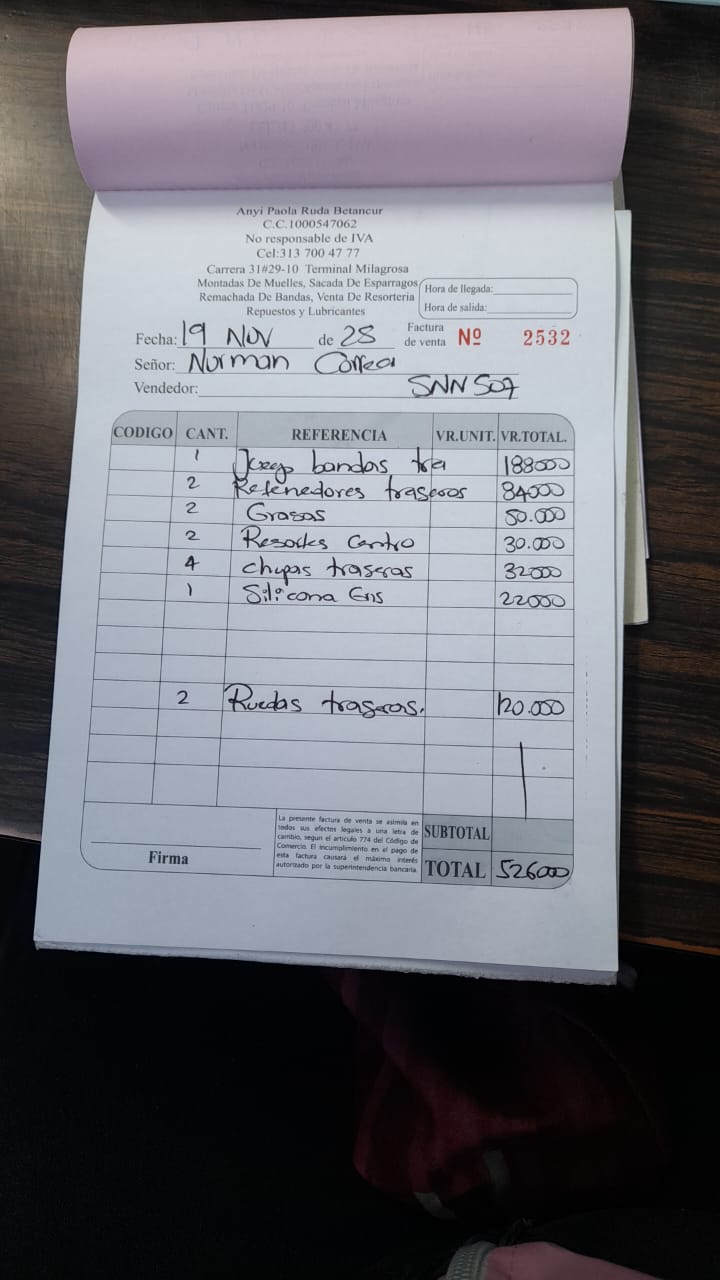 Anyi Paola Ruda Betancur
C.C.1000547062
No responsable de IVA
Cel:313 700 47 77
Carrera 31#29-10 Terminal Milagrosa
Montadas De Muelles, Sacada De Esparragos
Remachada De Bandas, Venta De Resorteria
Repuestos y Lubricantes
Hora de llegada:
Hora de salida:
Fecha: 19 NOV de 25 Factura de venta Nº 2532
Señor: Norman Correa
Vendedor: SNN507
CODIGO CANT. REFERENCIA VR.UNIT. VR.TOTAL.
1 Juego bandas tra 188000
2 Retenedores traseros 84000
2 Grasas 50.000
2 Resortes Centro 30.000
4 chupas traseras 32000
1 Silicona Gris 22000
2 Ruedas traseras. 120.000
La presente factura de venta se asimila en
todos sus efectos legales a una letra de
cambio, segun el articulo 774 del Código de
Comercio. El incumplimiento en el pago de
esta factura causará el máximo interés
autorizado por la superintendencia bancaria.
SUBTOTAL
Firma
TOTAL 526000